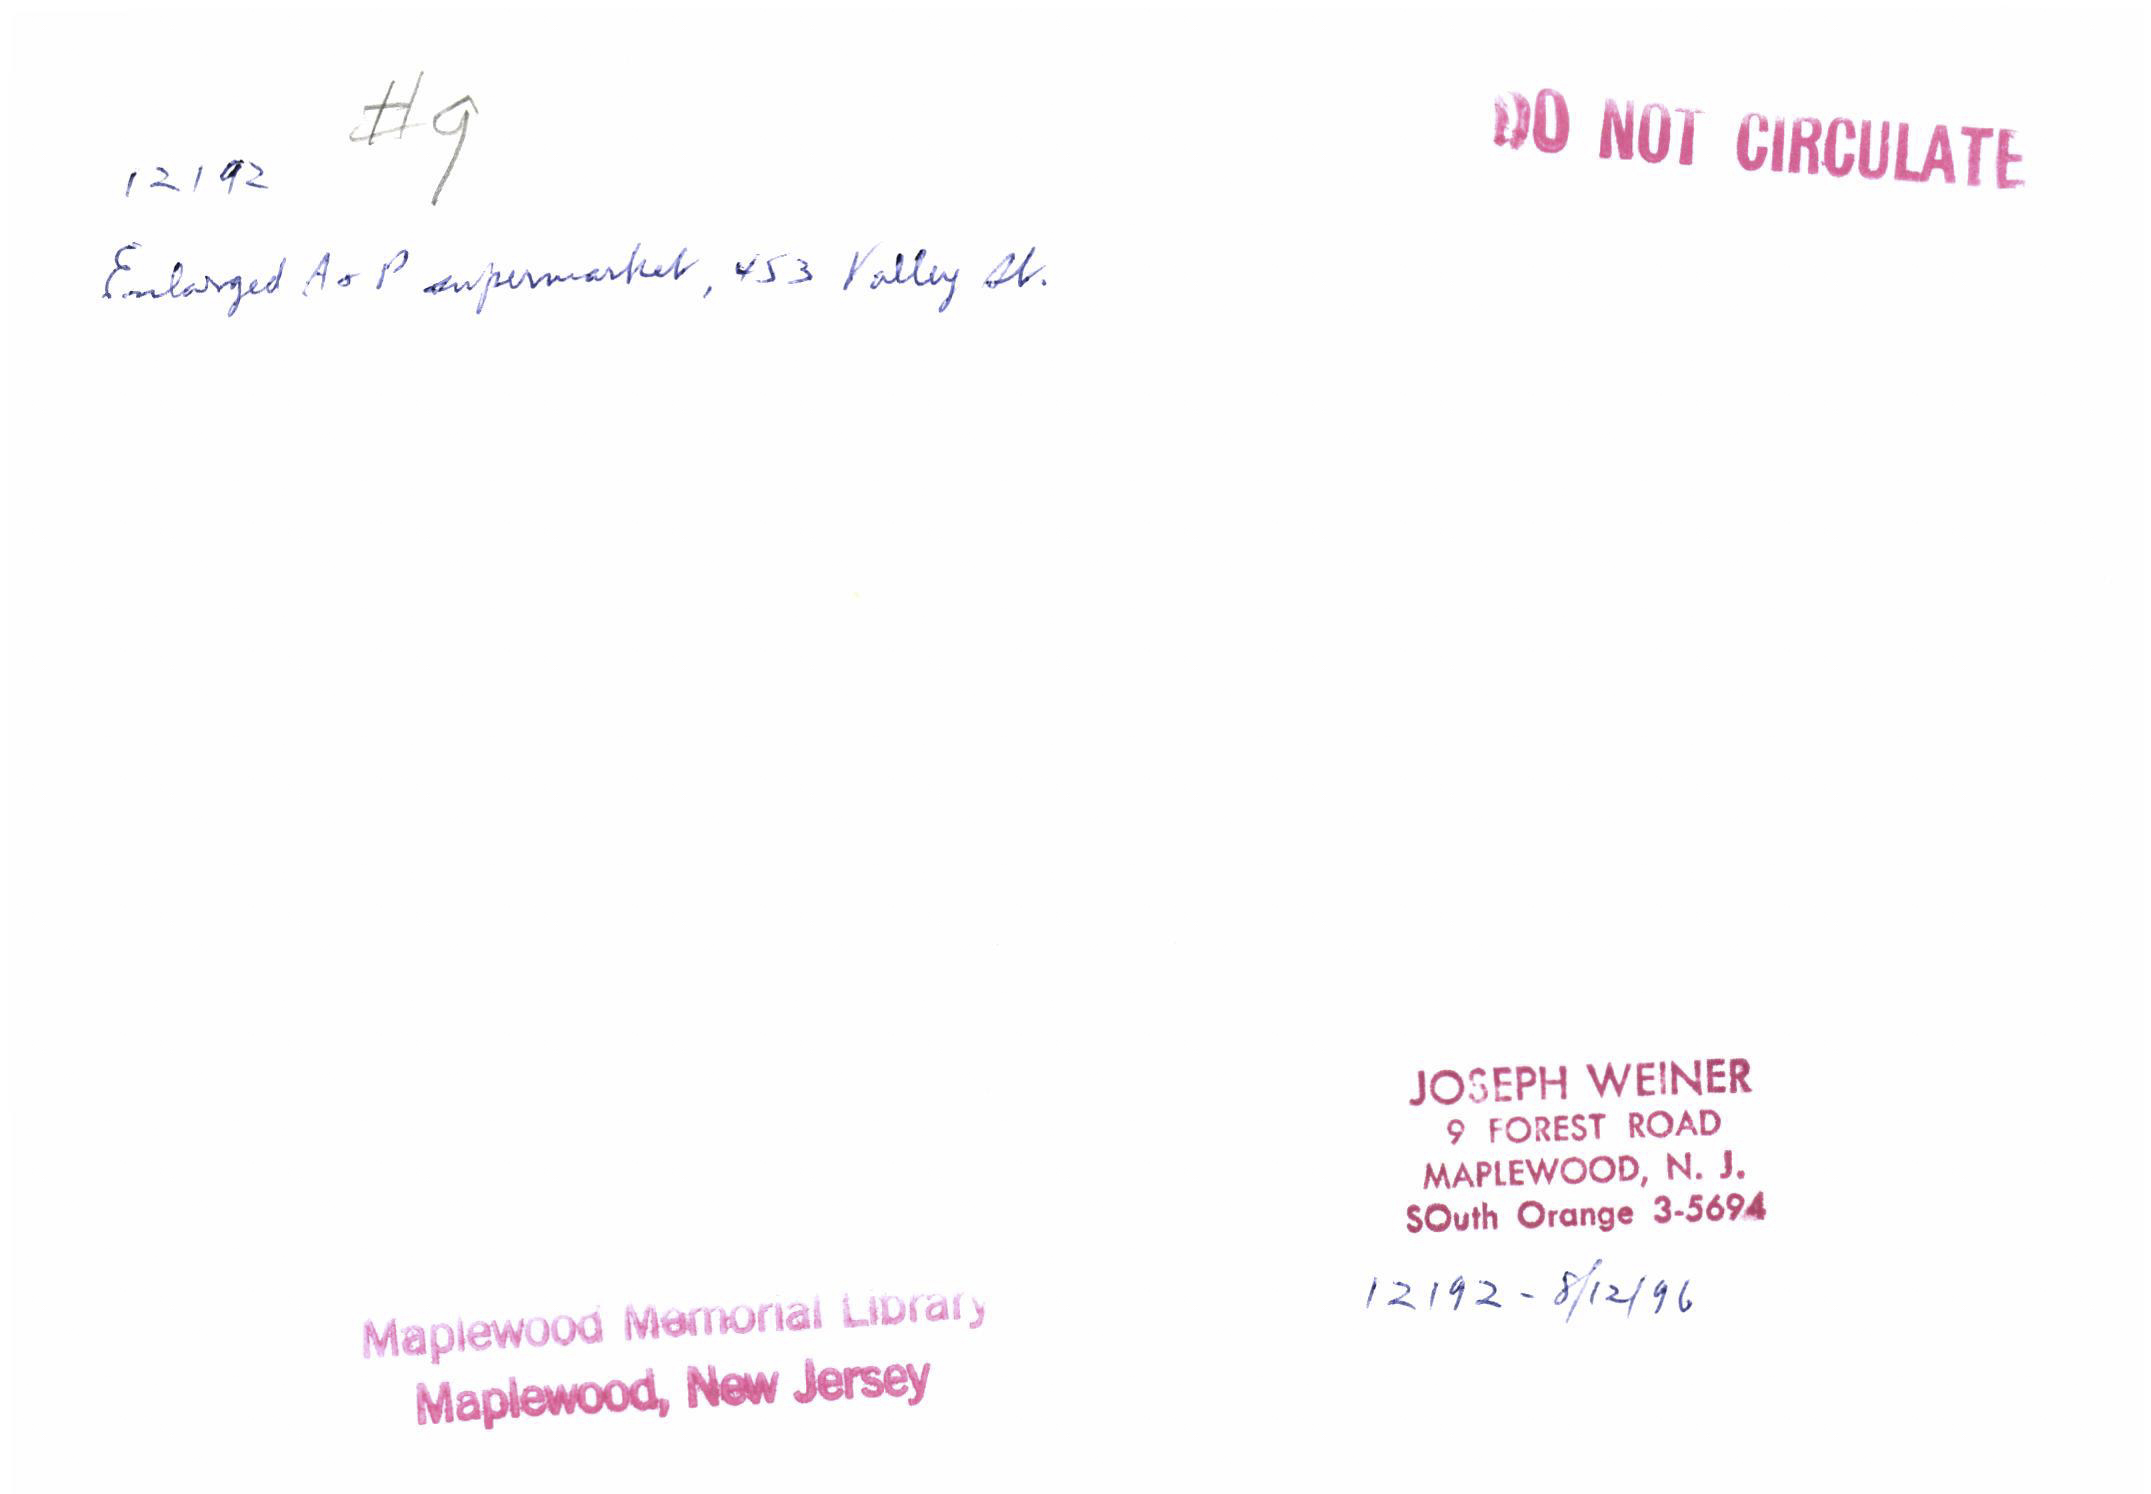 #9
DO NOT CIRCULATE
12192
Enlarged A & P supermarket, 453 Valley St.
JOSEPH WEINER
9 FOREST ROAD
MAPLEWOOD, N. J.
SOuth Orange 3-5694
12192 - 8/12/96
Maplewood Memorial Library
Maplewood, New Jersey